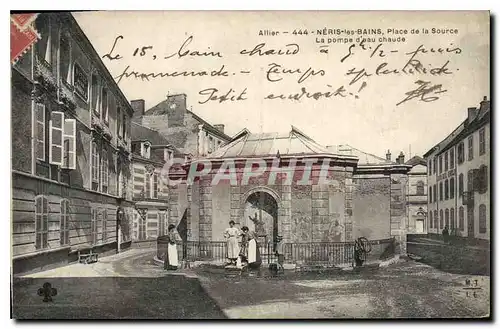 Allier — 444 — NÉRIS-les-BAINS, Place de la Source
La pompe d'eau chaude
Le 15, bain chaud à 5h 1/2 - puis
promenade. - Temps splendide.
Petit endroit!
CARTHAPHILATELIE
M.T.
I.L.